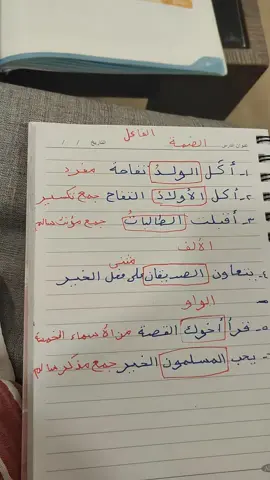 الفاعل
الضمة
١- أكل الولدُ تفاحة مفرد
٢- أكل الأولادُ التفاح جمع تكسير
٣- أقبلت الطالباتُ جمع مؤنث سالم
الألف
مثنى
٤- يتعاون الصديقان على فعل الخير
الواو
٥- قرأ أخوك القصة من الأسماء الخمسة
٦- يحب المسلمون الخير جمع مذكر سالم